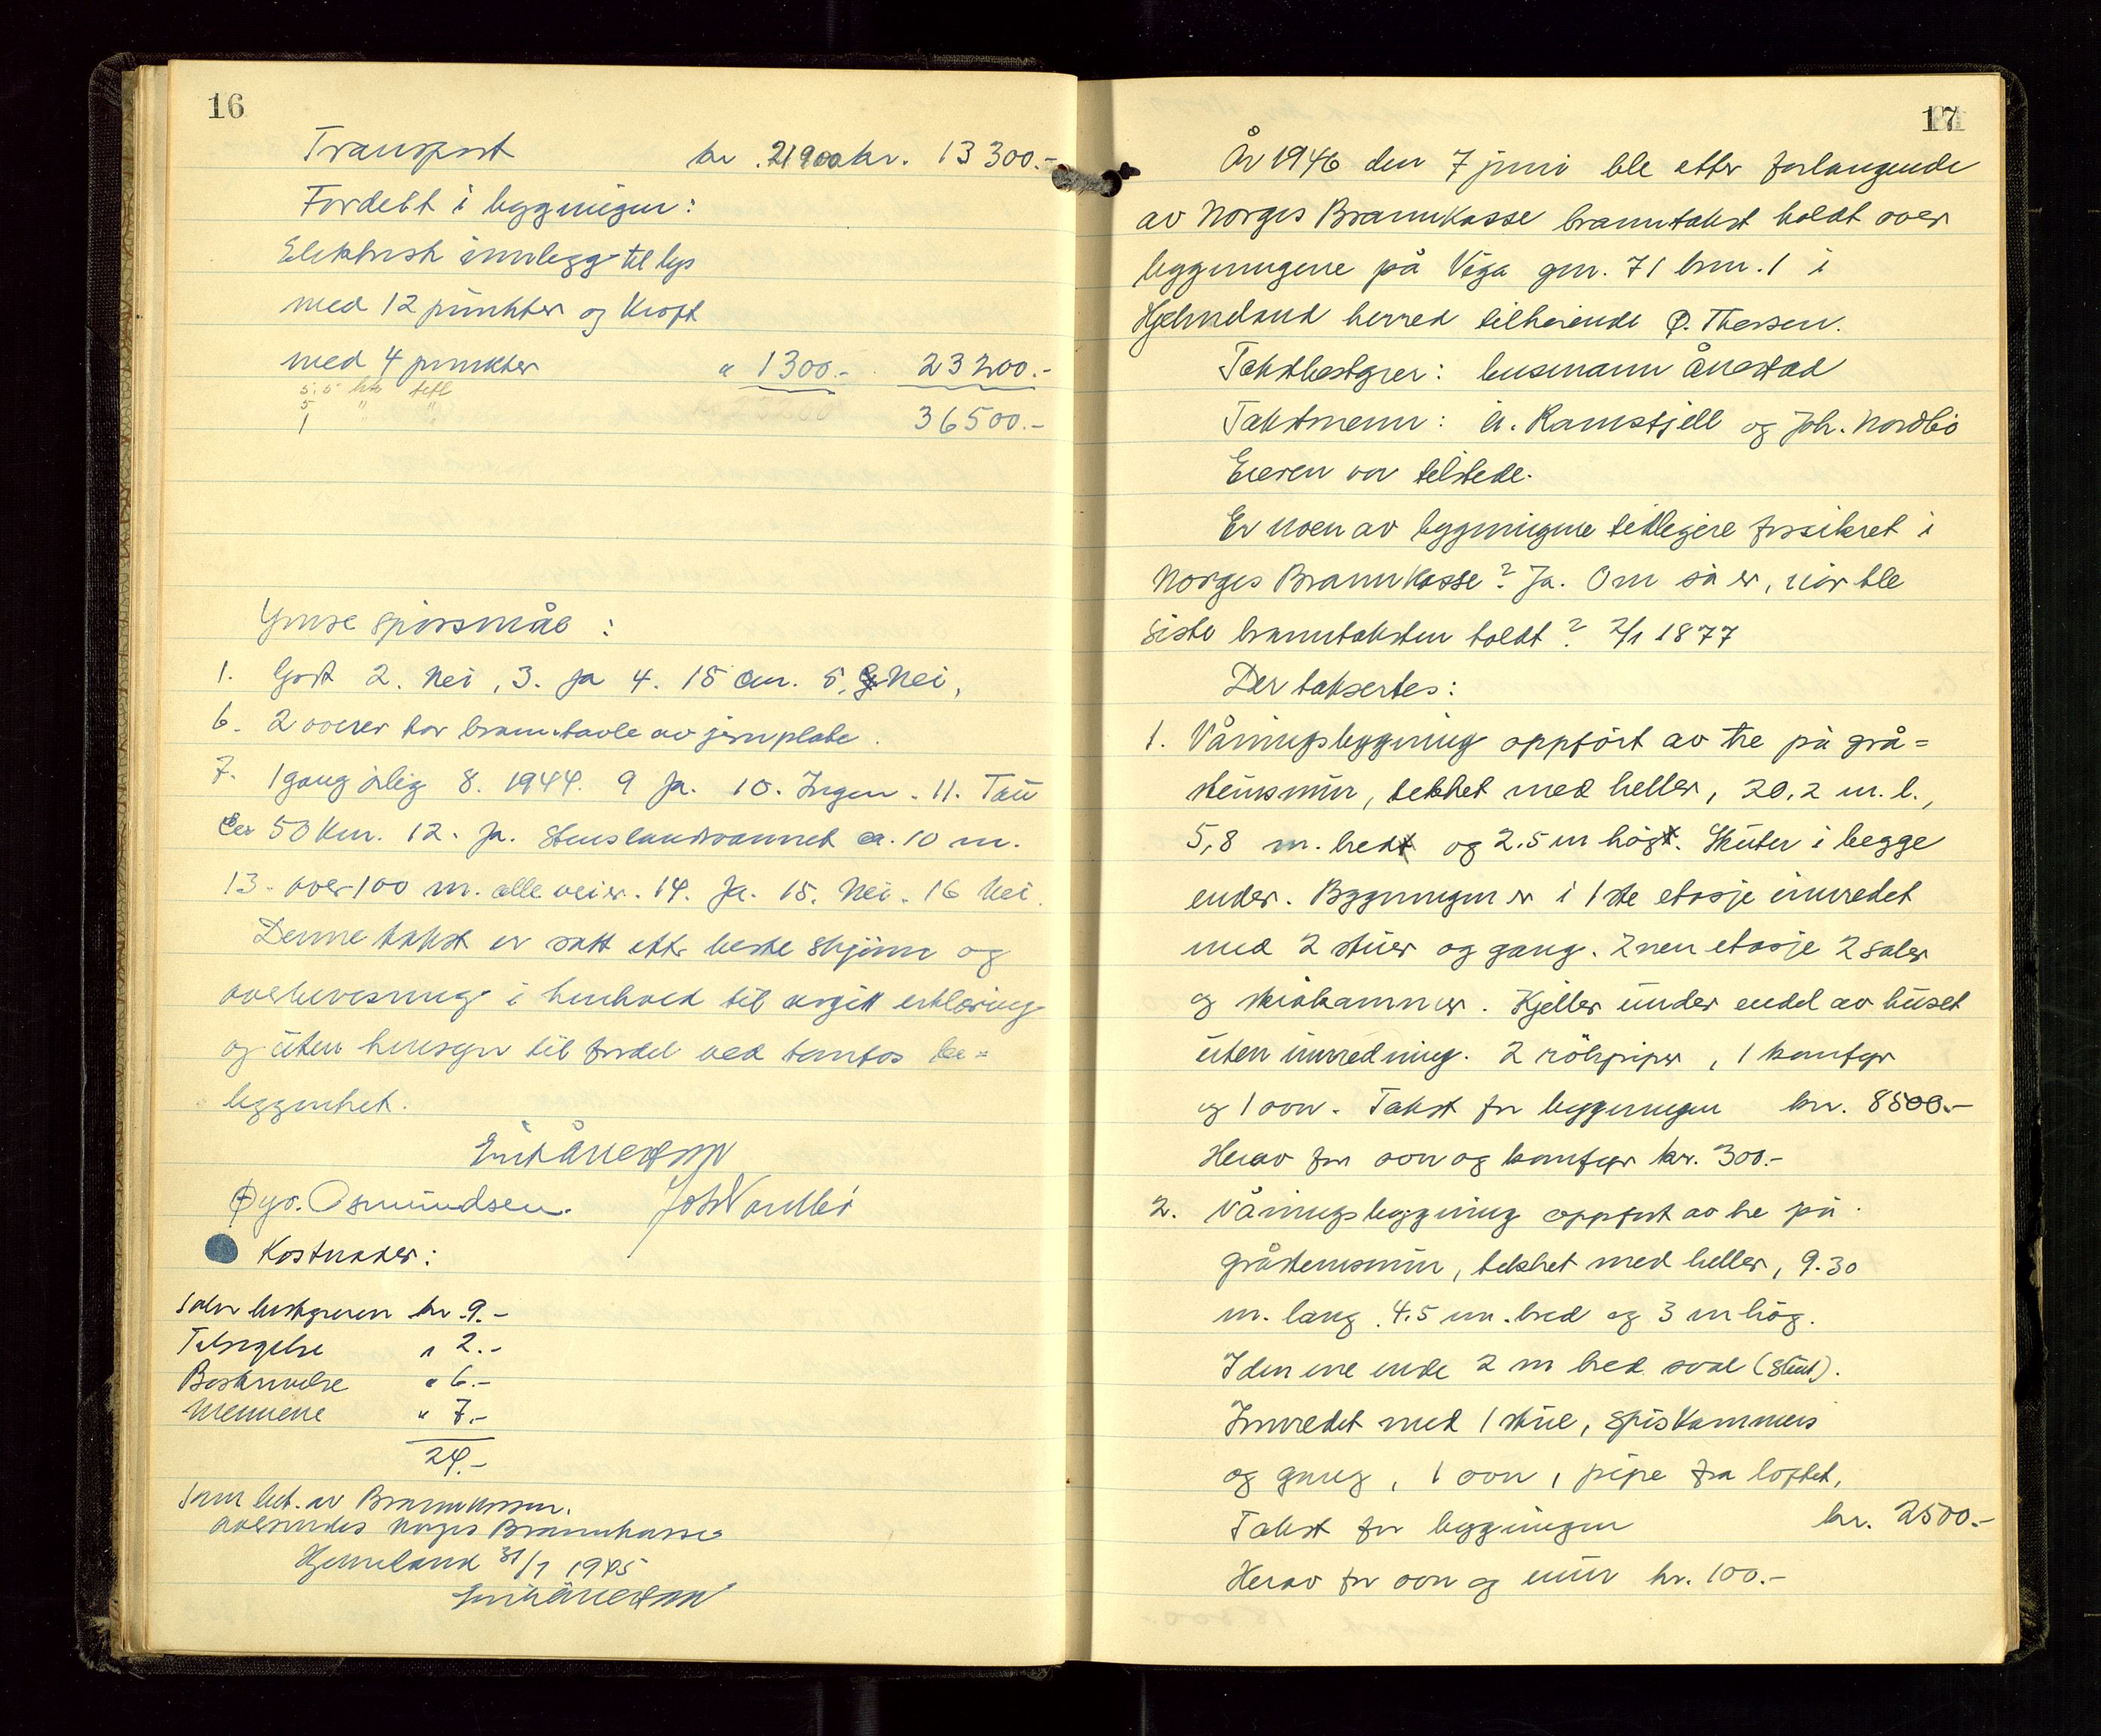 16
Transport kr. 21900 kr. 13300.-
Fordelt i bygningen:
Elektrisk innlegg til lys
med 12 punkter og kraft
med 4 punkter " 1300.- 23200.-
36500.-
Ymse spørsmål:
1. Godt 2. Nei, 3. Ja 4. 15 cm. 5. Nei,
6. 2 ovner har branntavle av jernplate.
7. 1 gang årlig 8. 1944. 9 Ja. 10. Ingen. 11. Tau
ca 50 km. 12. Ja. Stenslandsvannet ca. 10 m.
13. over 100 m. alle veier. 14. Ja. 15. Nei. 16 Nei.
Denne takst er satt etter beste skjønn og
overbevisning i henhold til avgitt erklæring
og uten hensyn til fordel ved tomtas be=
liggenhet.
Øyv. Osmundsen. Joh Nordbö
Kostnader:
kr. 9.-
" 2.-
Beskrivelse " 6.-
Mennene " 7.-
24.-
Som bet. av Brannkassen.
oversendes Norges Brannkasse
Hjelmeland 31/7 1945
17
År 1946 den 7 juni ble etter forlangende
av Norges Brannkasse branntakst holdt over
bygningene på Viga gnr. 71 bnr. 1 i
Hjelmeland herred tilhørende Ø. Thorsen.
Takstbestyrer: lensmann Ånestad
Takstmenn: A. Ramsfjell og Joh. Nordbö
Eieren var tilstede.
Er noen av bygningene tidligere forsikret i
Norges Brannkasse? Ja. Om så er, når ble
siste branntaksten holdt? 2/1 1877
Der taksertes:
1. Våningsbygning oppført av tre på grå=
steinsmur, tekket med heller, 20,2 m. l.,
5,8 m. bred og 2.5 m høg. Skuter i begge
ender. Bygningen er i 1ste etasje innredet
med 2 stuer og gang. 2nen etasje 2 saler
og skråkammer. Kjeller under endel av huset
uten innredning. 2 rökpiper, 1 komfyr
og 1 ovn. Takst for bygningen kr. 8500.-
Herav for ovn og komfyr kr. 300.-
2. Våningsbygning oppført av tre på
gråsteinsmur, tekket med heller, 9.30
m. lang 4.5 m. bred og 3 m høg.
I den ene ende 2 m bred sval (skut).
Innredet med 1 stue, spiskammers
og gang, 1 ovn, pipe fra loftet,
Takst for bygningen kr. 2500.-
Herav for ovn og mur kr. 100.-